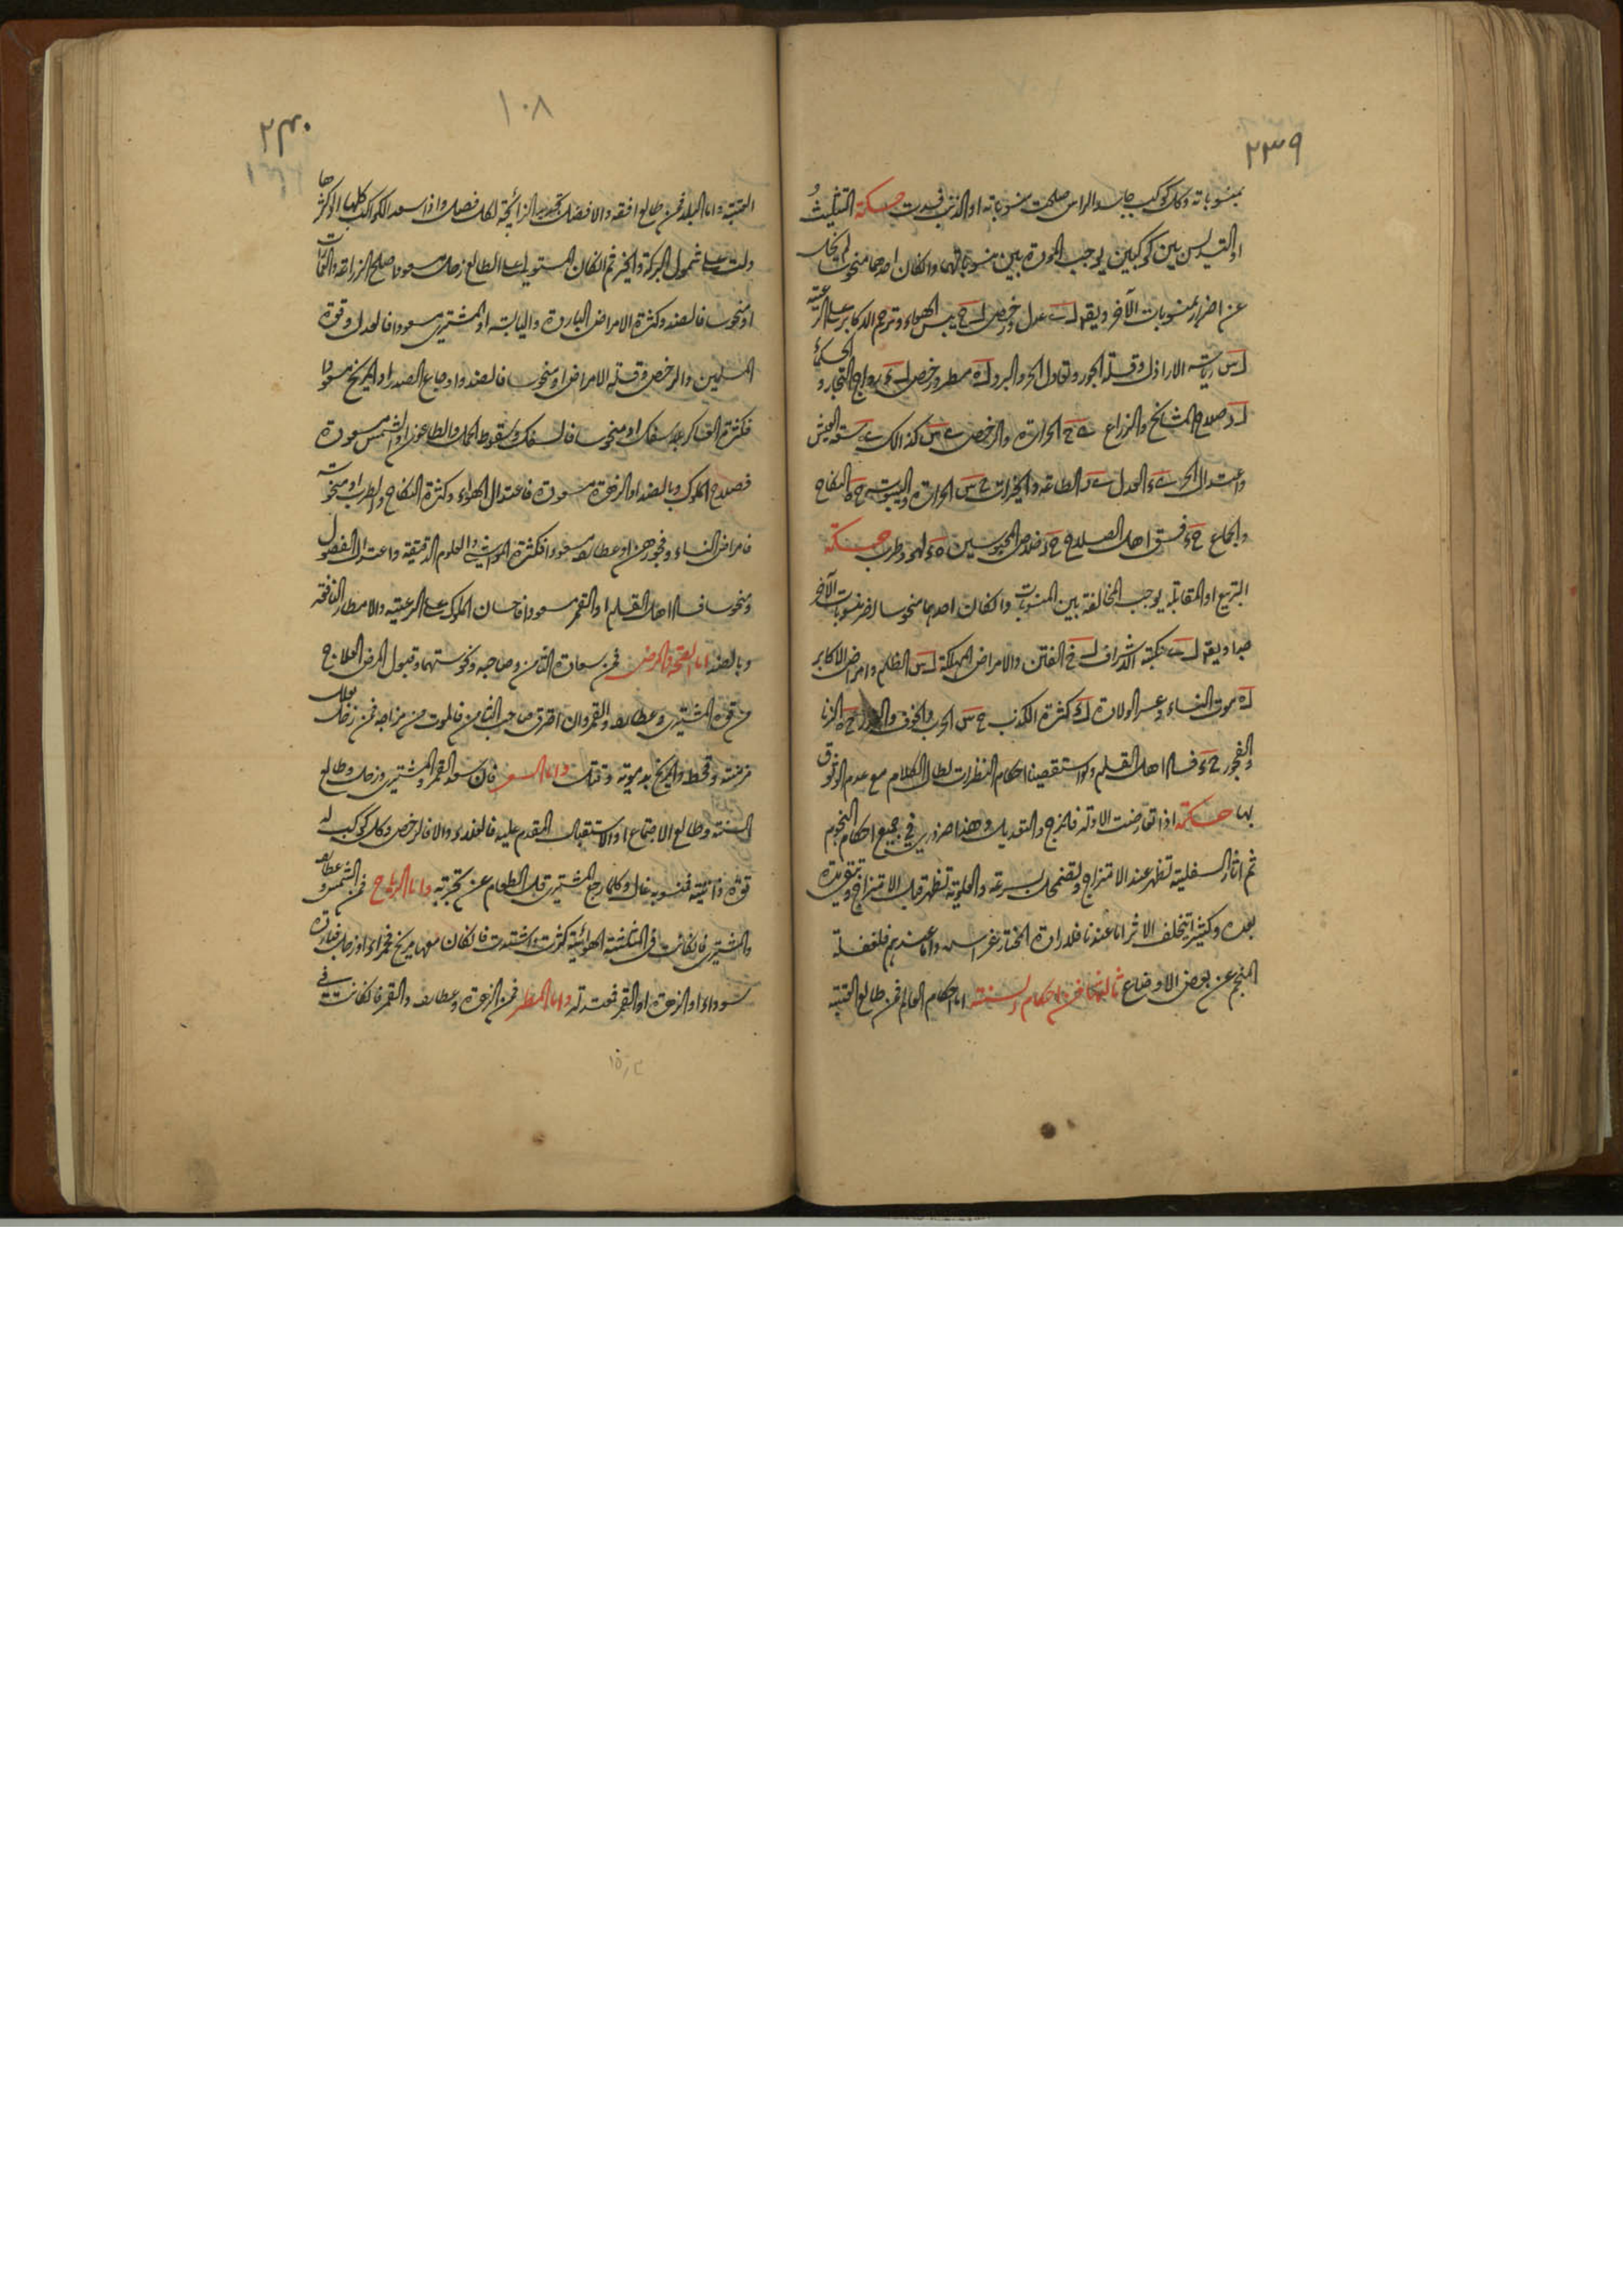 ٢٣٩
بمنسوباته وكل كوكب جاسد الراس صلحت منسوباته او الذنب فسدت حكمة التثليث
او التسديس بين كوكبين يوجب المودة بين منسوباتهما وان كان احدهما منحوسا لم يخل
عن اضرار بمنسوبات الآخر ويقول عدل ورخص يبس الهواء وترحم الاكابر على الرعية
رياسة الاراذل وقلة الجور وتعادل الحر والبرد مطر ورخص رواج التجار و الحكماء
وصلاح المشايخ والزراع الحرارة والرخص كذلك سعة العيش
واعتدال الحر العدل الطاعة والخيرات الحرارة واليبوسة النكاح
والجماع فسق اهل الصلاح خلاص المحبوسين لهو وطرب حكمة
التربيع او المقابلة يوجب المخالفة بين المنسوبات وان كان احدهما منحوسا اضر بمنسوبات الآخر
جدا ويقول نكبة الاشراف الفتن والامراض المهلكة الظلم وامراض الاكابر
موت النساء وعسر الولادة كثرة الكذب الحرب والخوف الزنا
والفجور فساد اهل القلم ولو استقصينا احكام النظرات لطال الكلام مع عدم الوثوق
بها حكمة اذا تعارضت الادلة فالمزج والتعديل وهذا ضروري في جميع احكام النجوم
ثم اثار السفلية تظهر عند الامتزاج وتضمحل بسرعة والعلوية تظهر قبل الامتزاج وتبقى مدة
بعده وكثيرا يتخلف الاثر اما عندنا فلارادة المختار تقدس واما عندهم فلغفلة
المنجم عن بعض الاوضاع ثالثها في احكام السنة اما احكام العالم فمن طالع القبة
١٠٨
٢٤٠
القبة واما البلد فمن طالع افقه والافضل تجديد الزائجة لكل فصل واذا سعد الكواكب كلها او اكثرها
دلت على شمول البركة والخير ثم ان كان المستولي على الطالع زحل مسعودا صلح الزراعة والعمارات
او منحوسا فالضد وكثرة الامراض الباردة واليابسة او المشتري مسعودا فالعدل وقوة
المسلمين والرخص وقلة الامراض او منحوسا فالضد واوجاع الصدر او المريخ مسعودا
فكثرة العساكر بلا سفك او منحوسا فالسفك وسقوط الحمل والطاعون او الشمس مسعودة
فصلاح الملوك وبالضد او الزهرة مسعودة فاعتدال الهواء وكثرة النكاح والطرب او منحوسة
فامراض النساء وفجورهن او عطارد مسعودا فكثرة المواشي والعلوم الدقيقة واعتدال الفصول
ومنحوسا فساد اهل القلم او القمر مسعودا فاحسان الملوك على الرعية والامطار النافعة
وبالضد اما الصحة والمرض فمن سعادة الثامن وصاحبه ونحوستهما وقبول المرض العلاج
من قوة المشتري وعطارد والقمر وان احترق صاحب الثامن فالموت من مزاجه فمن زحل بعلل
مزمنة وقحط والمريخ بدموية وقتل واما السعر فان سعد القمر والمشتري وزحل وطالع
السنة وطالع الاجتماع او الاستقبال المقدم عليه فالغلاء والا فالرخص وكل كوكب له
قوة ذاتية فمنسوبه غال وكلما رجع المشتري قل الطعام عن تجربة واما الرياح فمن الشمس وعطارد
والمشتري فان كانت في المثلثة الهوائية كثرت واشتدت فان كان معها مريخ فحمراء او زحل فباردة
سوداء او الزهرة او القمر فمعتدلة واما المطر فمن الزهرة وعطارد والقمر فان كانت في